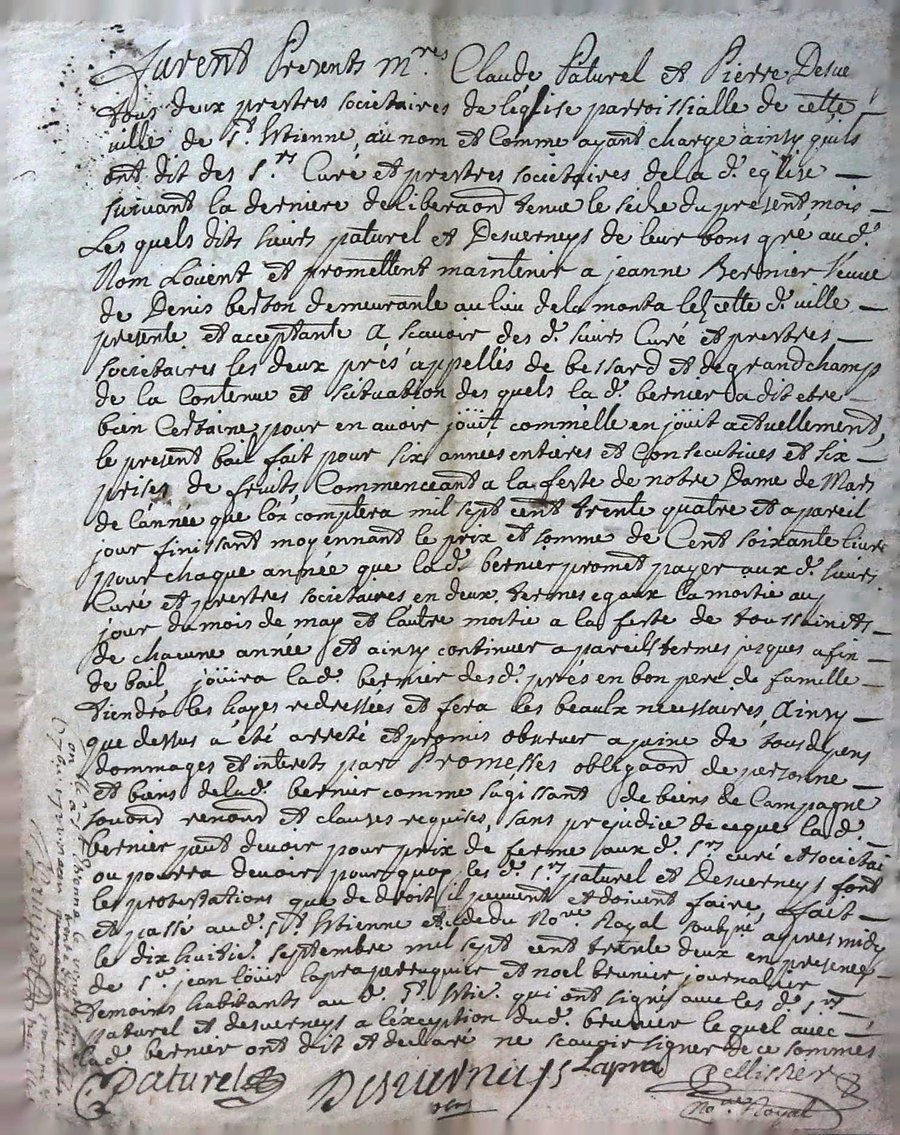 furent Presents m.res Claude Paturel et Pierre Desve
tous deux prestres societaires de leglise parroissialle de cette
ville de st. Etienne, au nom et Comme ayant charge ainsy quils
ont dit des s.rs Curé et prestres societaires de la d. eglise —
suivant la derniere deliberaon tenue le seiche du present mois —
Les quels dits sieurs paturel et Desverneys de leur bons gré au d.
Nom Louent et promettent maintenir a jeanne Bernier veuve
de Denis berton demeurante au lieu de la monta lez cette d. ville —
presente et acceptante A scavoir des d. sieurs Curé et prestres —
societaires les deux prés appellés de bessard et de grandchamp
de la Contenue et situation des quels la d. bernier a dit etre —
bien Certaine pour en avoir joüit commelle en joüit actuellement,
le present bail fait pour six années entieres et Consecutives et six —
prises de fruits, Commenceant a la feste de notre Dame de Mars
de lannée que lox comptera mil sept cent trente quatre et a pareil
jour finissant moyennant le prix et somme de Cent soixante livres
pour chaque année que la d. bernier promet payer aux d. sieurs
Curé et prestres societaires en deux termes egaux la moitie au
jour du mois de may et lautre moitie a la feste de toussaintts —
de chacune année et ainsy continuer a pareils termes jusques a fin —
de bail, joüira la d. bernier des d. prés en bon pere de famille —
tiendra les hayes redressées et fera les beaulx necessaires, Ainsy —
que dessus a été arreté et promis observer a peine de tous depens
dommages et interets par Promesses obligaond de personne —
et biens de la d. bernier comme s'agissant de biens de Campagne
soumond renond et clauses requises, sans prejudice de ce que la d.
bernier peut devoir pour prix de ferme aux d. s.rs curé et societai
ou pourra devoir pourquoy les d. s.rs paturel et Desverneys font
les protestations que de droit il peuvent et doivent faire fait —
et passé au d. st. Etienne etude du No.re Royal soubzné apres midy
le dix huitie. septembre mil sept cent trente deux en presence
de s.r jean loüis lapra perruquier et noel brunier journalier
temoins habitants au d. st. Etie. qui ont signés avec les d. s.rs —
paturel et desverneys a léxception du d. brunier le quel avec —
la d. bernier ont dit et declaré ne scavoir signer de ce sommes
Paturel Desverneys Lapra Pellissier
No.re Royal